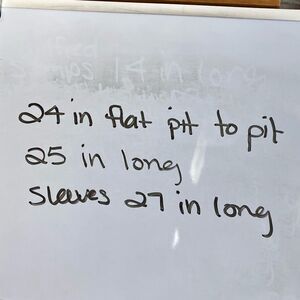 24 in flat pit to pit
25 in long
Sleeves 27 in long